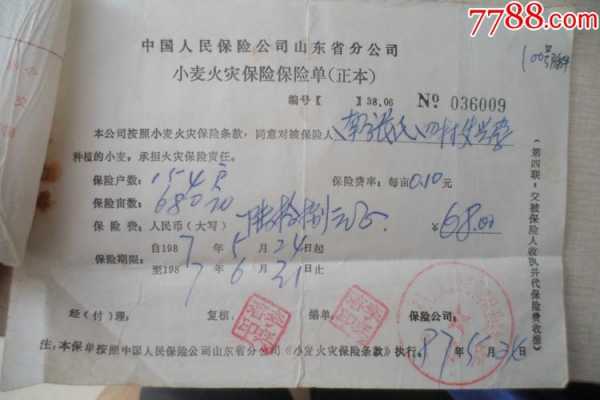 7788.com
中国人民保险公司山东省分公司
小麦火灾保险保险单(正本)
编号【 】38.06 № 036009
本公司按照小麦火灾保险条款,同意对被保险人
种植的小麦,承担火灾保险责任。
保险户数:154户 保险费率:每亩0.10元
保险亩数:680
保 险 费:人民币(大写)陆拾捌元 ¥68.00
保险期限:
自1987年5月24日起
至1987年6月21日止
经(付)理: 复核: 缮单: 保险公司:
87年5月26日
注:本保单按照中国人民保险公司山东省分公司《小麦火灾保险条款》执行。
(第四联:交被保险人收执并代保险费收据)